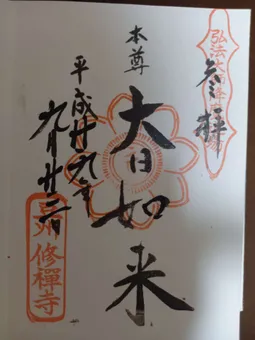 参拝
本尊
大日如来
平成廿九年
九月廿二日
修禅寺